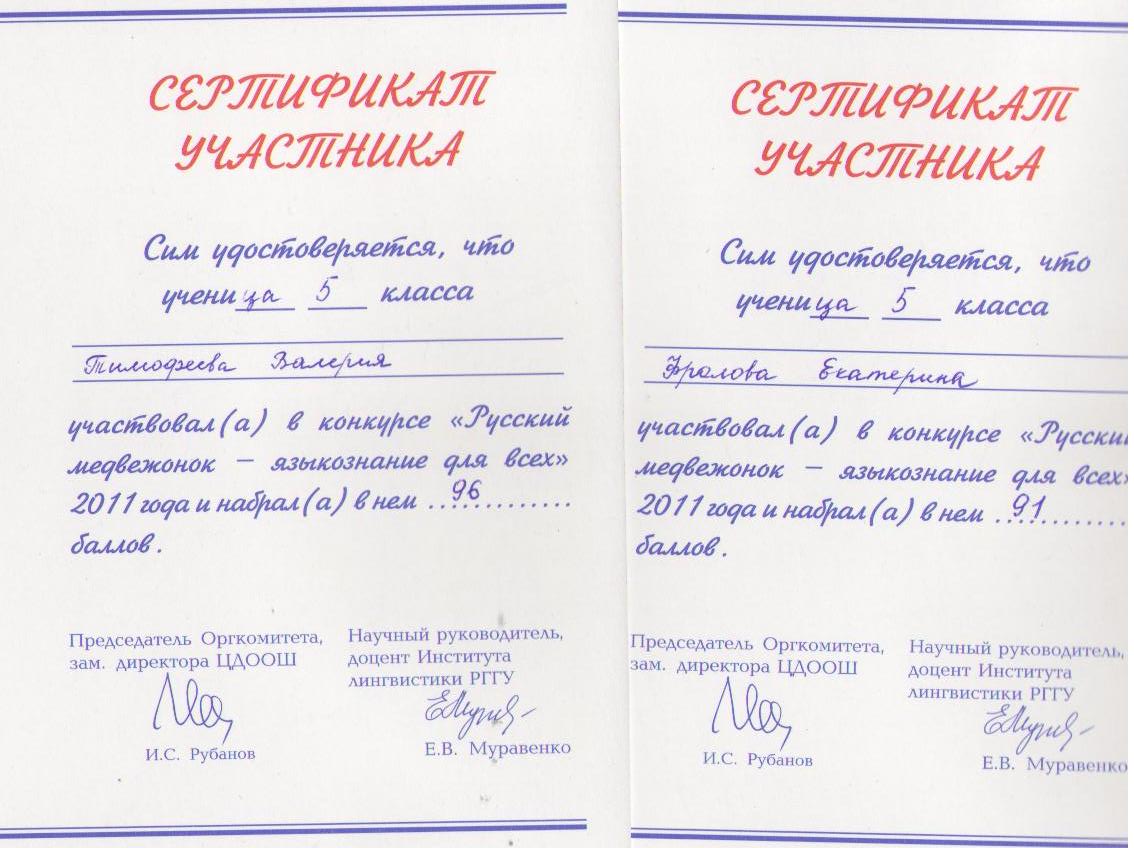 СЕРТИФИКАТ
УЧАСТНИКА
Сим удостоверяется, что
ученица 5 класса
Тимофеева Валерия
участвовал(а) в конкурсе «Русский
медвежонок – языкознание для всех»
2011 года и набрал(а) в нем ..96..........
баллов.
Председатель Оргкомитета,
зам. директора ЦДООШ
И.С. Рубанов
Научный руководитель,
доцент Института
лингвистики РГГУ
Е.В. Муравенко
СЕРТИФИКАТ
УЧАСТНИКА
Сим удостоверяется, что
ученица 5 класса
Фролова Екатерина
участвовал(а) в конкурсе «Русский
медвежонок – языкознание для всех»
2011 года и набрал(а) в нем ..91..........
баллов.
Председатель Оргкомитета,
зам. директора ЦДООШ
И.С. Рубанов
Научный руководитель,
доцент Института
лингвистики РГГУ
Е.В. Муравенко